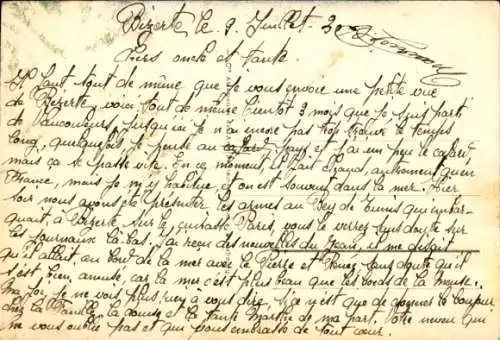 Bizerte le 9 Juillet
Chers oncle et tante.
Il faut tout de même que je vous envoie une petite vue
de Bizerte, voici tout de même bientôt 3 mois que je suis parti
de Vaucouleurs, jusqu'ici je n'ai encore pas trop trouvé le temps
long, quelquefois je pense au pays et j'ai un peu le cafard
mais ça se passe vite. En ce moment, il fait chaud, autrement qu'en
France, mais je m'y habitue, on est souvent dans la mer. Hier
soir nous avons été présenter les armes au Bey de Tunis qui embar-
quait à Bizerte sur le cuirassé Paris, vous le verrez sans doute sur
les journaux là bas. J'ai reçu des nouvelles du Jean, il me disait
qu'il allait au bord de la mer avec le Pierre et René, sans doute qu'il
s'est bien amusé, car la mer c'est plus beau que les bords de la Meuse.
Ma foi je ne vois plus rien à vous dire, si ce n'est que de donner le bonjour
chez la la Louise et la tante Marthe de ma part. Votre neveu qui
ne vous oublie pas et qui vous embrasse de tout cœur.